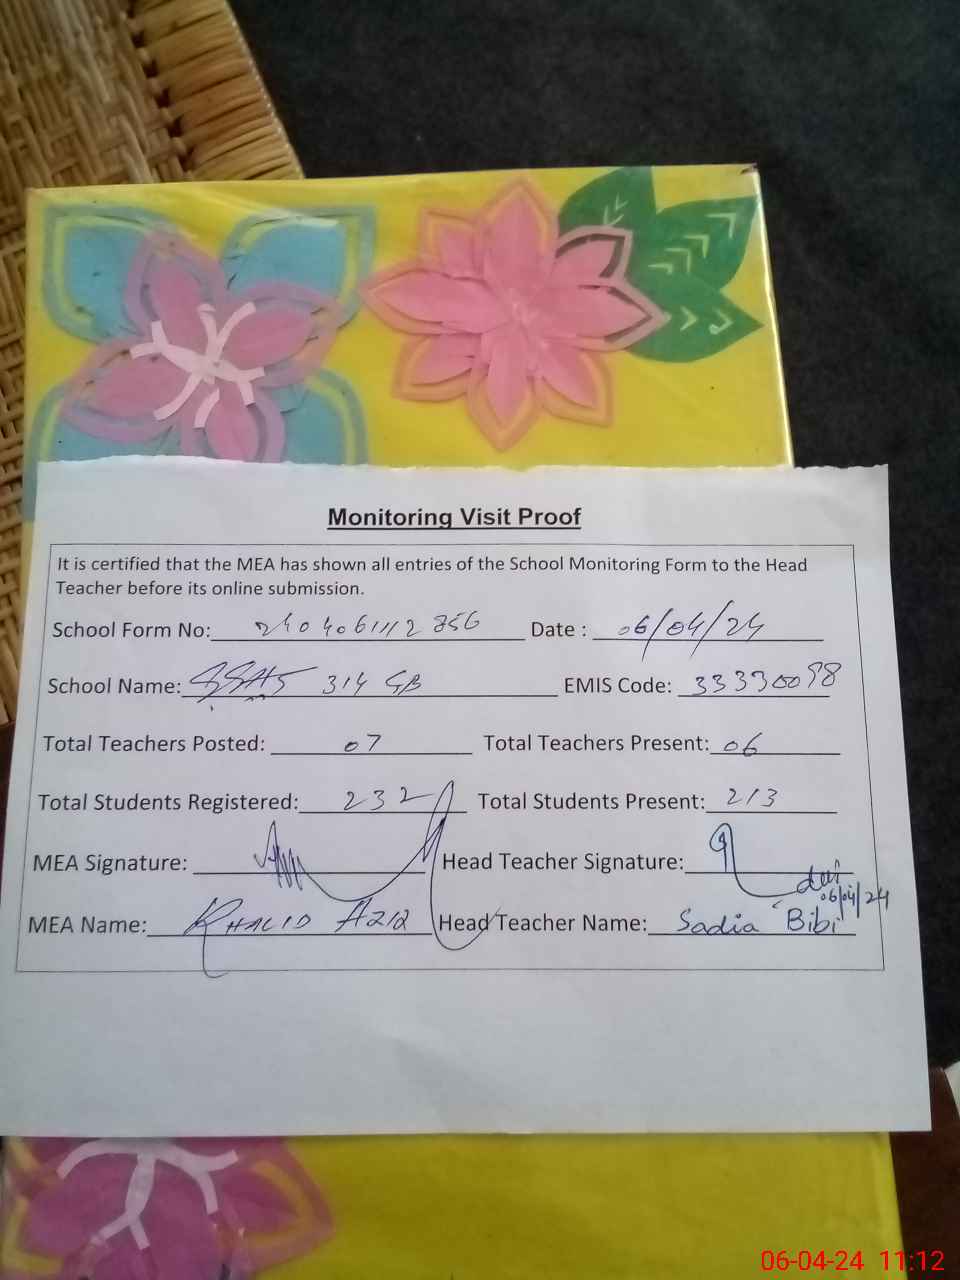 Monitoring Visit Proof
It is certified that the MEA has shown all entries of the School Monitoring Form to the Head
Teacher before its online submission.
School Form No: 2404061112856 Date : 06/04/24
School Name: 314 GB EMIS Code: 33330098
Total Teachers Posted: 07 Total Teachers Present: 06
Total Students Registered: 232 Total Students Present: 213
MEA Signature: Head Teacher Signature:
06/04/24
MEA Name: KHALID AZIZ Head Teacher Name: Sadia Bibi
06-04-24 11:12